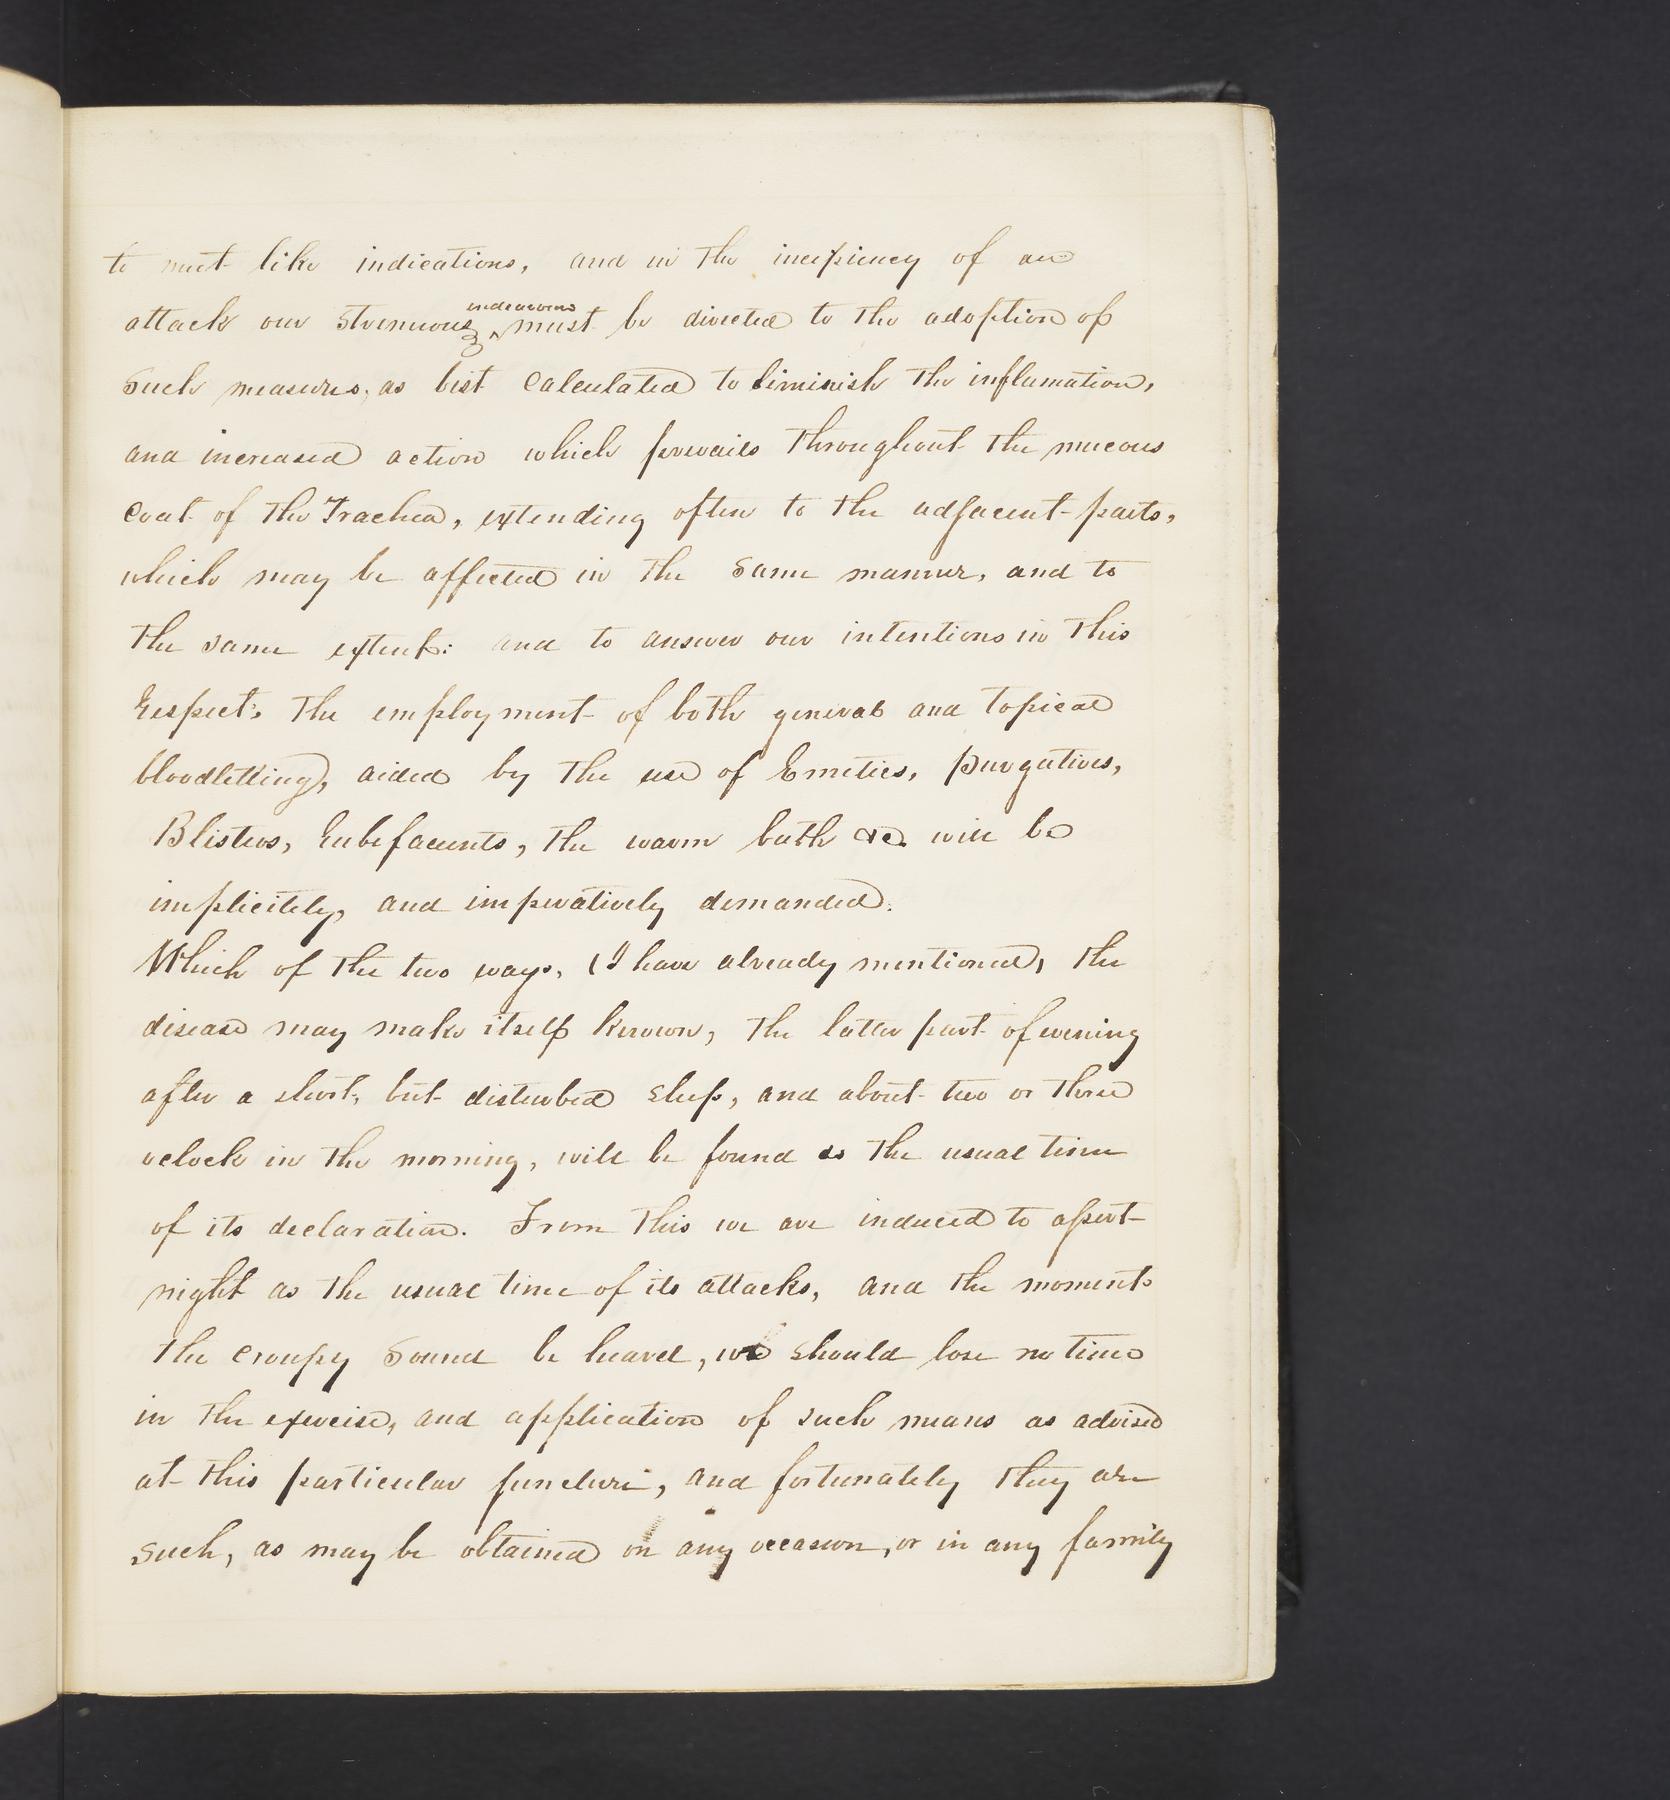 to meet like indications, and in the incipiency of an
attack our strenuous endeavors must be directed to the adoption of
such measures, as best calculated to diminish the inflamation,
and increased action which prevails throughout the mucous
coat of the Trachea, extending often to the adjacent parts,
which may be affected in the same manner, and to
the same extent: and to answer our intentions in this
respect, the employment of both general and topical
bloodletting, aided by the use of Emetics, purgatives,
Blisters, rubefacients, the warm bath &c. will be
implicitely, and imperatively demanded.
Which of the two ways, (I have already mentioned, the
disease may make itself known, the latter part of evening
after a short, but disturbed sleep, and about two or three
oclock in the morning, will be found as the usual time
of its declaration. From this we are induced to assert
night as the usual time of its attacks, and the moment
the croupy sound be heard, we should lose no time
in the exercise, and application of such means as advised
at this particular juncture, and fortunately they are
such, as may be obtained on any occasion, or in any family